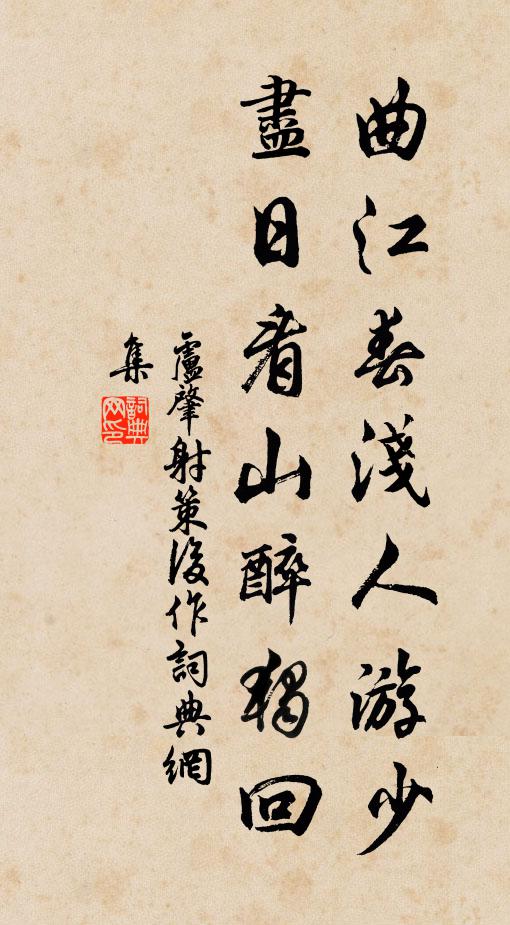 曲江春淺人游少
盡日看山醉獨回
盧肇射策後作詞典網
集
詞典网印